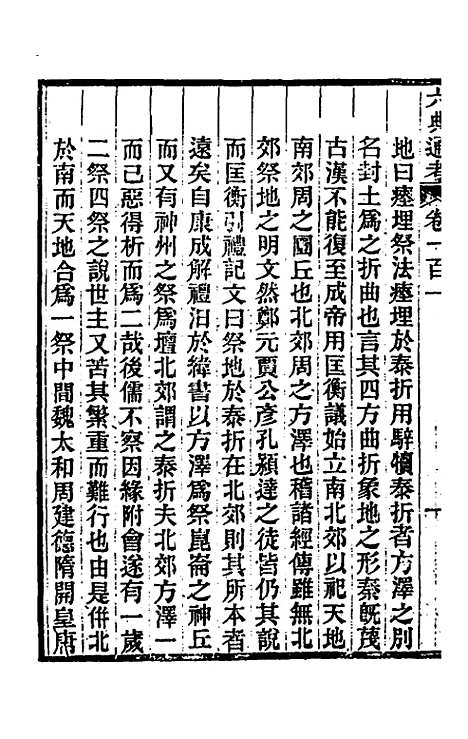 六典通考 卷一百一
地曰瘞埋祭法瘞埋於泰折用騂犢泰折者方澤之別
名封土爲之折曲也言其四方曲折象地之形秦旣蔑
古漢不能復至成帝用匡衡議始立南北郊以祀天地
南郊周之圜丘也北郊周之方澤也稽諸經傳雖無北
郊祭地之明文然鄭元賈公彥孔穎達之徒皆仍其說
而匡衡引禮記文曰祭地於泰折在北郊則其所本者
遠矣自康成解禮汩於緯書以方澤爲祭崑崙之神丘
而又有神州之祭爲壇北郊謂之泰折夫北郊方澤一
而已惡得析而爲二哉後儒不察因緣附會遂有一歲
二祭四祭之說世主又苦其繁重而難行也由是倂北
於南而天地合爲一祭中間魏太和周建德隋開皇唐